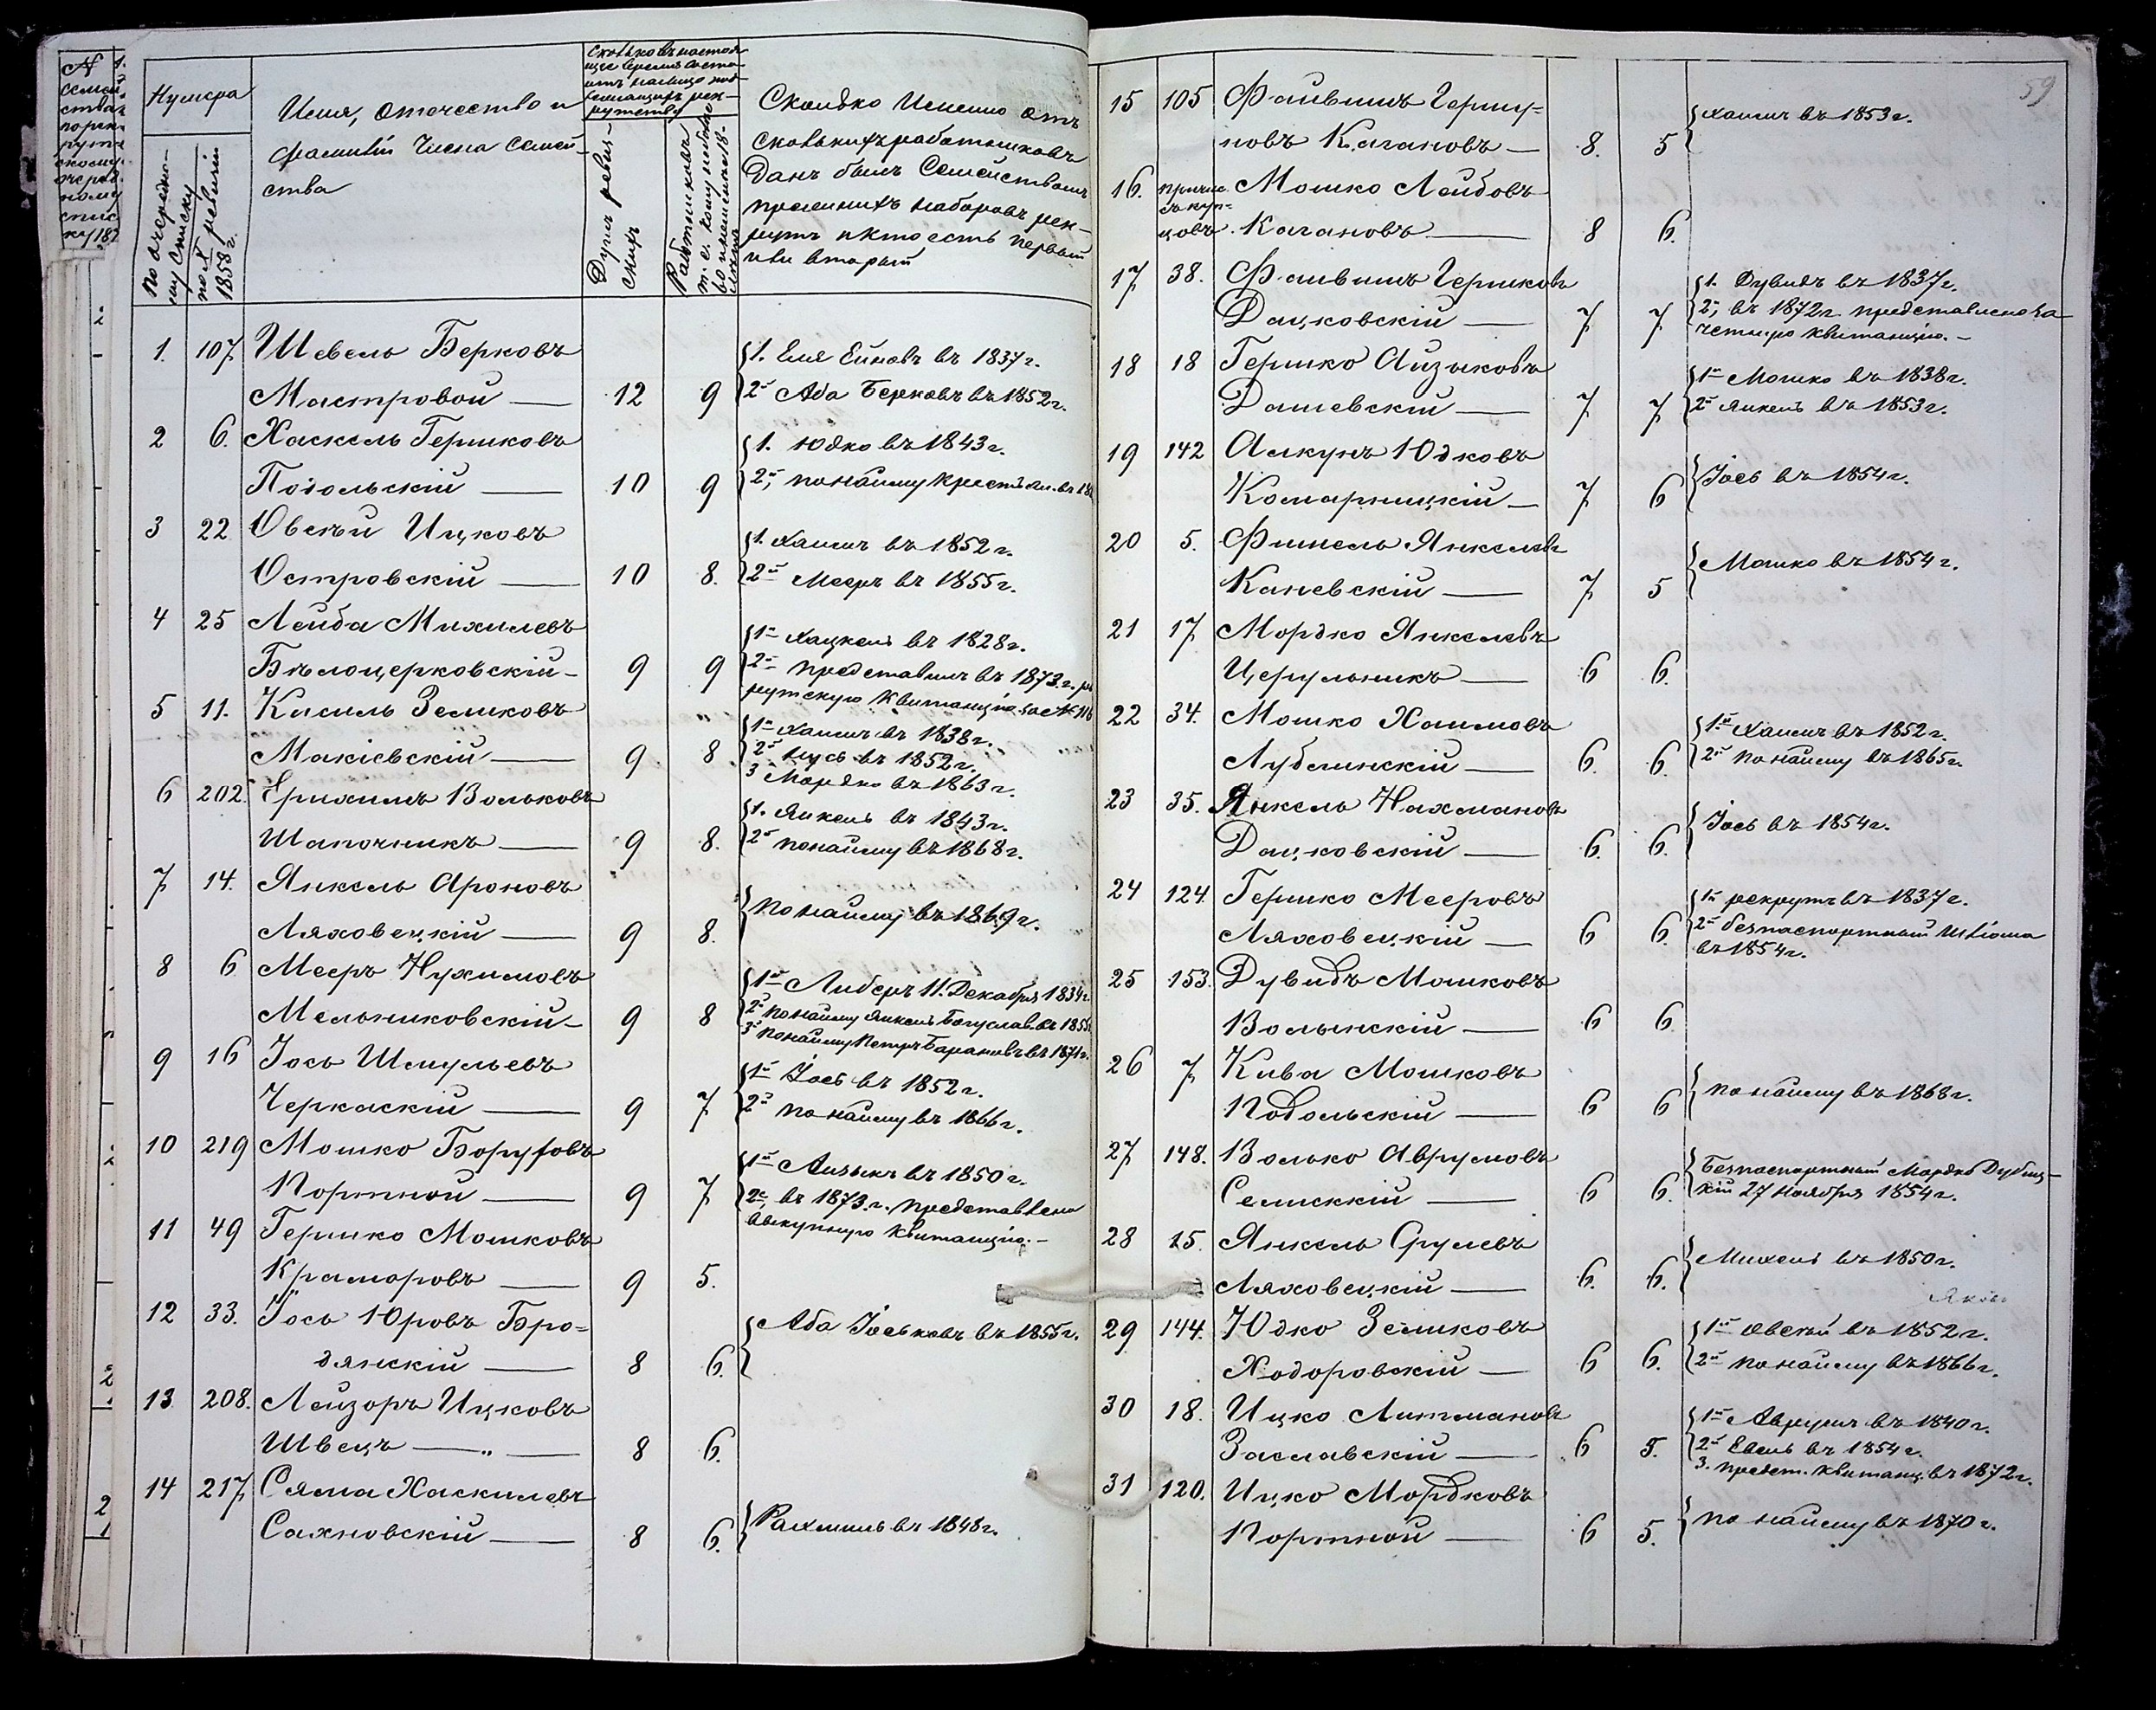 59
№
семей-
ства
по рек-
рутс
скому
очеред.
ному
спис
ку 187
Нумера
По очередно-
му списку
по X ревизіи
1858 г.
Имя, Отчество и
фамилія Члена Семей-
ства
Сколько въ настоя
щее время состо
итъ налицо под
лежащихъ рек-
рутству
Душъ ревиз-
скихъ
Работниковъ
Сколько Именно отъ
сколькихъ работниковъ
Данъ былъ Семействомъ
прежнихъ наборовъ рек-
рутъ и кто есть первый
или вторый
1. 107 Шевель Берковъ
Мастровой — 12 9
1. Еля Ейновъ въ 1837 г.
2й Аба Берковъ въ 1852 г.
2 6. Хаскель Гершковъ
Погольскій — 10 9
1. Юдко въ 1843 г.
2й, по найму Крестьян. въ 18
3 22 Овсѣй Ицковъ
Островскій — 10 8.
1. Хаимъ въ 1852 г.
2й Мееръ въ 1855 г.
4 25 Лейба Михилевъ
Бѣлоцерковскій — 9 9
1й Хацкель въ 1828 г.
2й представилъ въ 1873 г. рек
рутскую квитанцію за №
5 11. Кисиль Зельковъ
Макіевскій — 9 8
1й Хаимъ въ 1838 г.
2й Нусь въ 1852 г.
3 Мордко въ 1863 г.
6 202. Ерихимъ Вольковъ
Шапочникъ — 9 8.
1. Янкель въ 1843 г.
2й по найму въ 1868 г.
7 14. Янкель Ароновъ
Ляховецкій — 9 8.
По найму въ 1869 г.
8 6 Мееръ Нухимовъ
Мельниковскій — 9 8
1й Либеръ 11. Декабря 1834 г.
2й по найму Янкель Богуслав. въ 1855
3й по найму Петръ Барановъ въ 1871 г.
9 16 Іось Шмульевъ
Черкаскій — 9 7
1й Іось въ 1852 г.
2й по найму въ 1866 г.
10 219 Мошко Боруховъ
Портной — 9 7
1й Айзыкъ въ 1850 г.
2е, въ 1873 г. представлена
выкупную квитанцію. —
11 49 Гершко Мошковъ
Краморовъ — 9 5.
12 33. Іось Юровъ Бро=
дянскій — 8 6.
Аба Іоськовъ въ 1855 г.
13 208. Лейзоръ Ицковъ
Швецъ — „ — 8 6.
14 217 Сяма Хаскилевъ
Сахновскій — 8 6.
Рахмиль въ 1848 г.
15 105 Файвишъ Гершу=
новъ Кагановъ — 8. 5
Хаимъ въ 1853 г.
16. причис. Мошко Лейбовъ
съ куп=
цовъ. Кагановъ — 8 6.
17 38. Файвишъ Гершковъ
Дацковскій — 7 7
1. Дувидъ въ 1837 г.
2й, въ 1872 г. представлено за
четную квитанцію. —
18 18 Гершко Айзыковъ
Дашевскій — 7 7
1й Мошко въ 1838 г.
2й Янкель въ 1853 г.
19 142 Алкунъ Юдковъ
Комарницкій — 7 6
Іось въ 1854 г.
20 5. Фишель Янкелевъ
Каневскій — 7 5
Мошко въ 1854 г.
21 17 Мордко Янкелевъ
Церульникъ — 6 6.
22 34. Мошко Хаимовъ
Лублинскій — 6. 6.
1й Хаимъ въ 1852 г.
2й по найму въ 1865 г.
23 35. Янкель Нахмановъ
Дацковскій — 6. 6.
Іось въ 1854 г.
24 124. Гершко Мееровъ
Ляховецкій — 6 6.
1й рекрутъ въ 1837 г.
2й безпаспортный
въ 1854 г.
25 153. Дувидъ Мошковъ
Волынскій — 6 6
26 7 Кива Мошковъ
Подольскій — 6 6
по найму въ 1868 г.
27 148. Волько Аврумовъ
Селискій — 6 6.
Безпаспортный Мордко Дубиц-
кій 27 Ноября 1854 г.
28 15. Янкель Срулевъ
Ляховецкій — 6. 6.
Михель въ 1850 г.
29 144. Юдко Зельковъ
Ходоровскій — 6 6.
1й Овсѣй въ 1852 г.
2й по найму въ 1866 г.
30 18. Ицко Литмановъ
Заславскій — 6 5.
1й Аврумъ въ 1840 г.
2й Евель въ 1854 г.
3. предст. квитанц. въ 1872 г.
31 120. Ицко Мордковъ
Портной — 6 5.
по найму въ 1870 г.